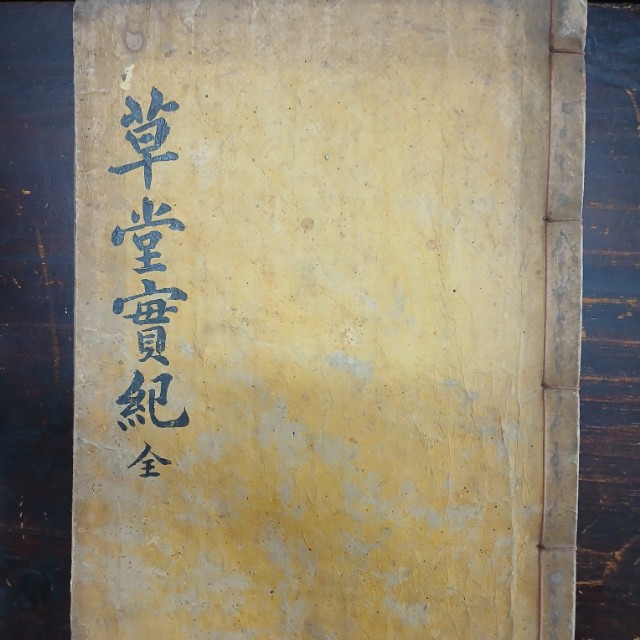 草堂實紀 全